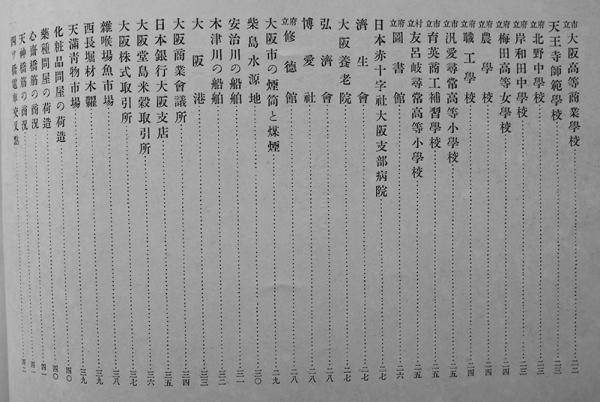 市立大阪高等商業學校……二二
天王寺師範學校……二三
府立北野中學校……二三
府立岸和田中學校……二三
府立梅田高等女學校……二四
府立農學校……二四
府立職工學校……二四
市立汎愛尋常高等小學校……二五
市立育英商工補習學校……二五
村立友呂岐尋常高等小學校……二五
府立圖書館……二六
日本赤十字社大阪支部病院……二七
濟生會……二七
大阪養老院……二七
弘濟會……二八
博愛社……二八
府立修德館……二八
大阪市の煙筒と煤煙……二九
柴島水源地……三〇
安治川の船舶……三一
木津川の船舶……三二
大阪港……三三
大阪商業會議所……三四
日本銀行大阪支店……三五
大阪堂島米穀取引所……三六
大阪株式取引所……三七
雜喉場魚市場……三八
西長堀材木糶……三九
天滿靑物市場……三九
化粧品問屋の荷造……四〇
藥種問屋の荷造……四〇
心齋橋筋の商況……四一
天神橋筋の商況……四一
四ツ橋電車交叉點……四二